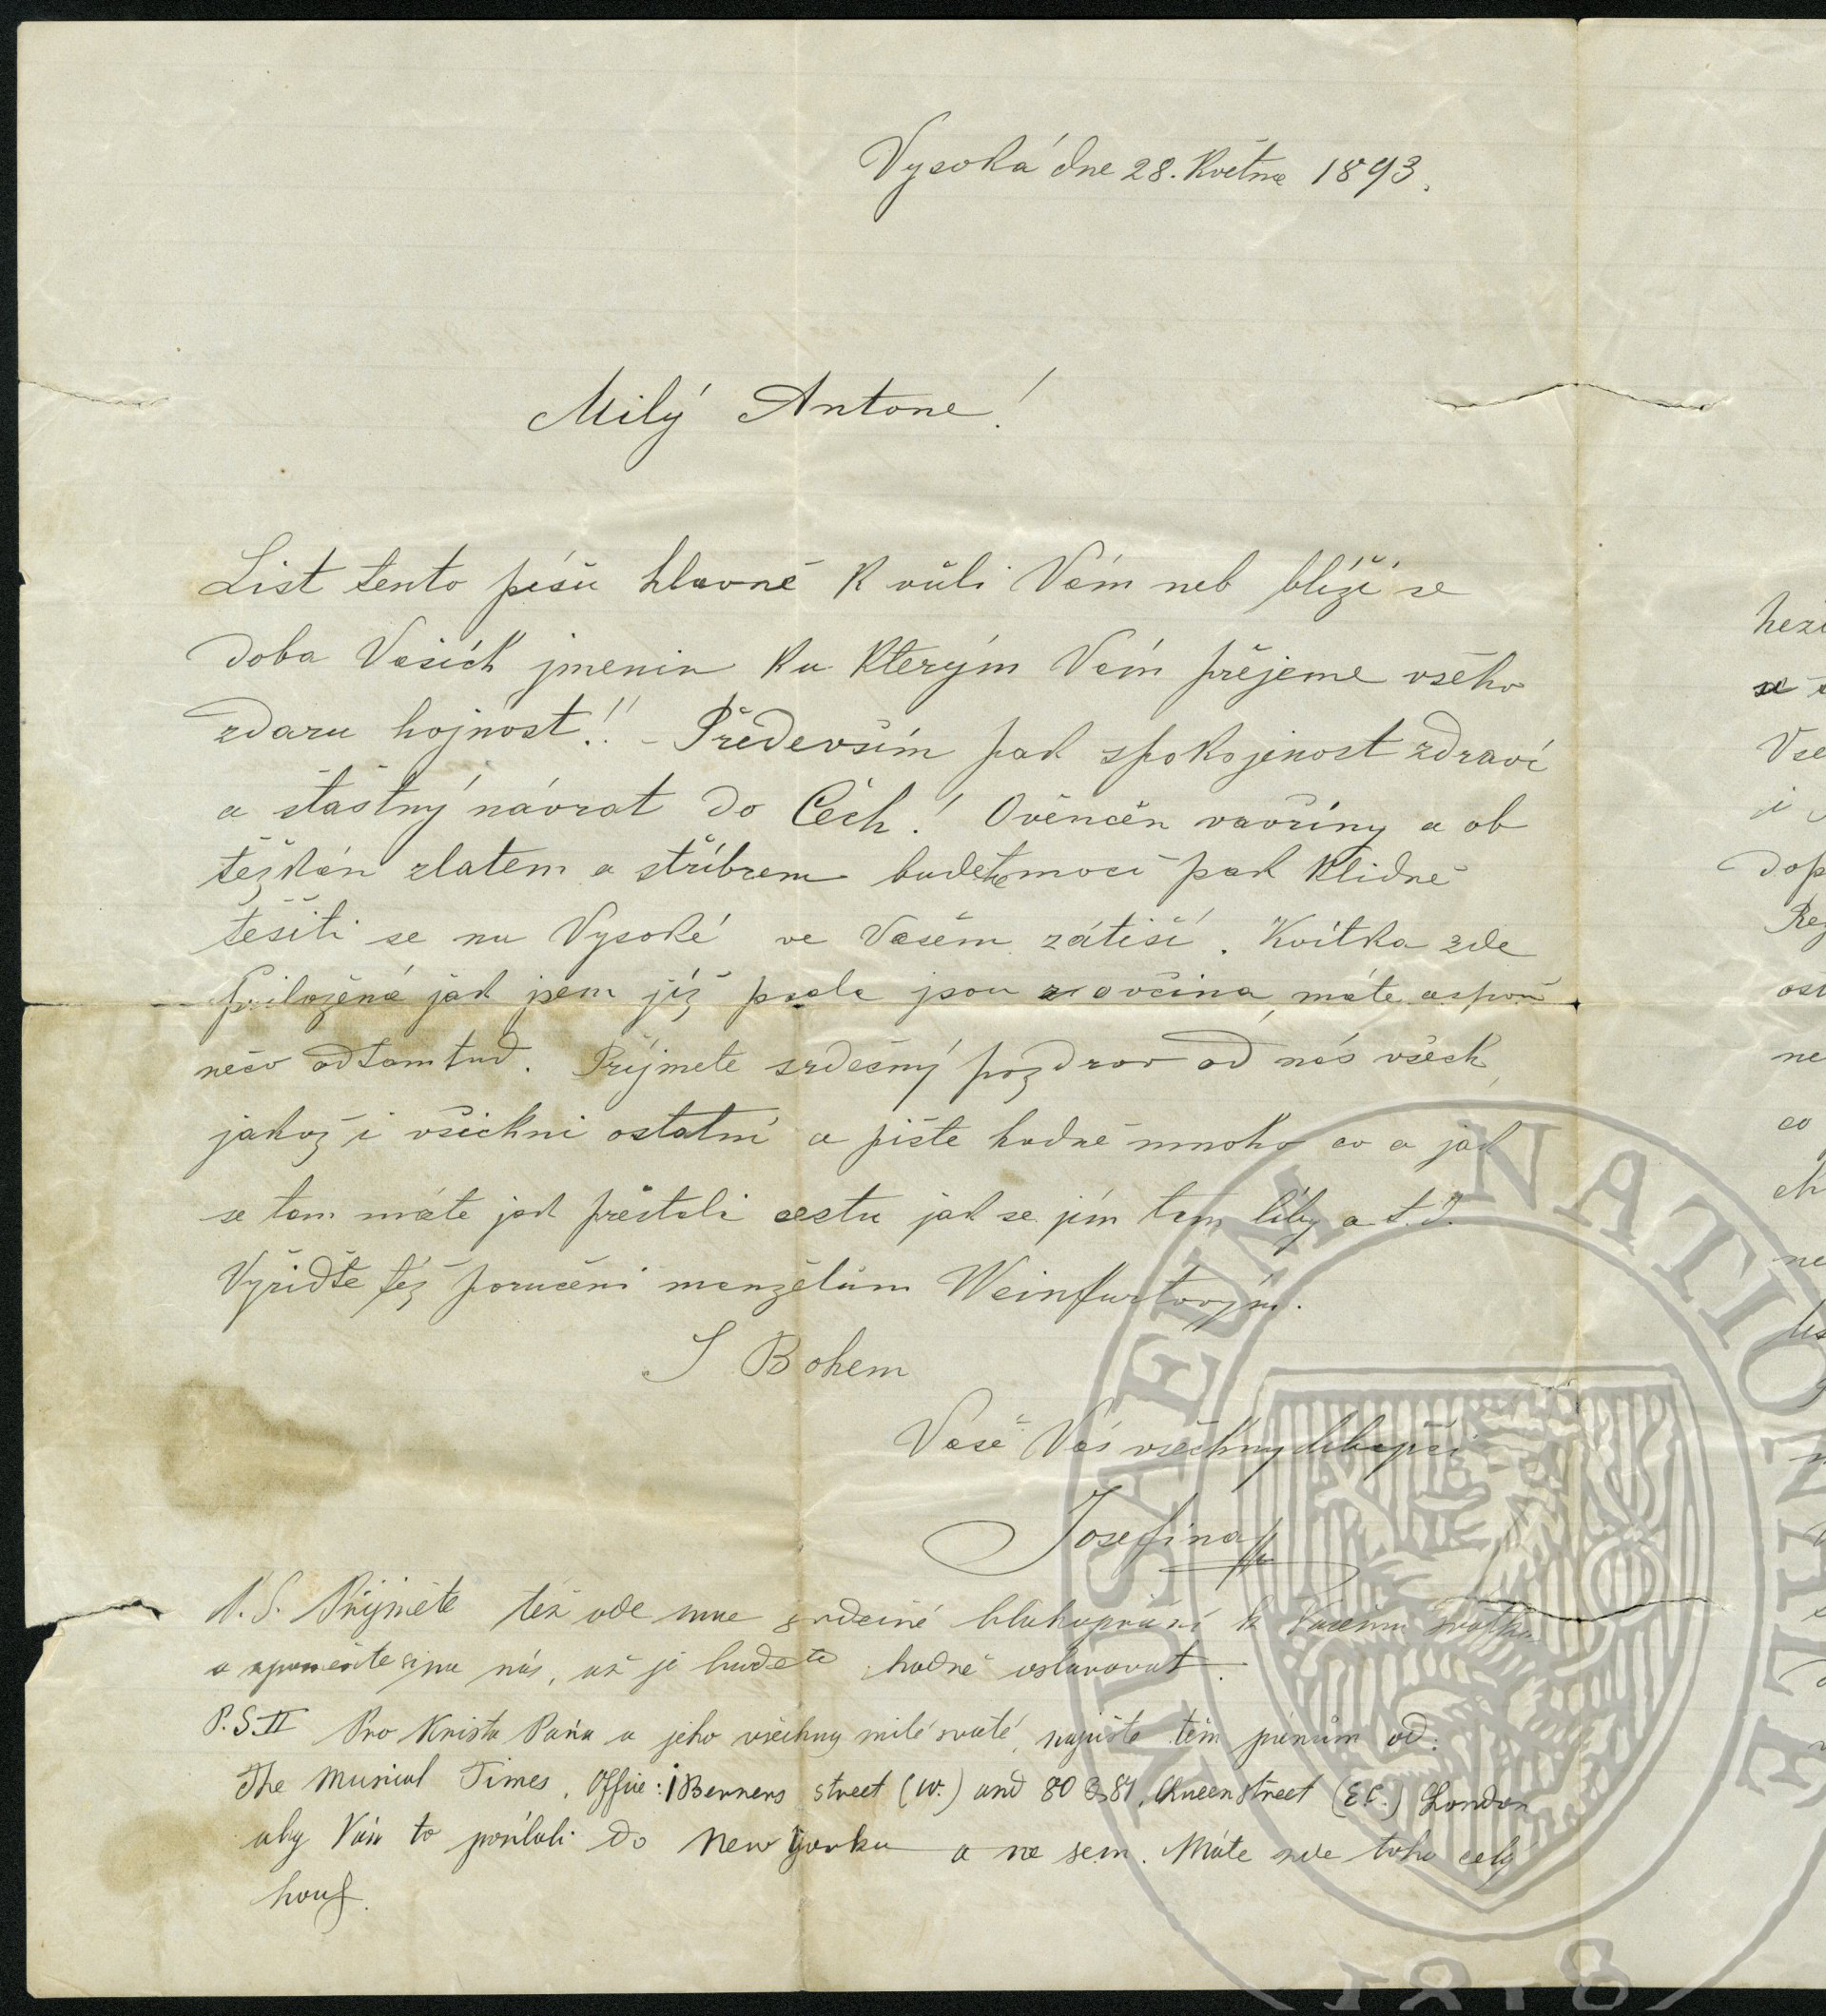 Vysoká dne 28. Května 1893.
Milý Antone!
List tento píšu hlavně k vůli Vám neb blíží se
doba Vašich jmenin ku kterým Vám přejeme všeho
zdaru hojnost!! – Především pak spokojenost zdraví
a štastný návrat do Čech! Ověnčen vavříny a ob
těžkán zlatem a stříbrem budete moci pak klidně
těšiti se na Vysoké ve Vašem zátiší. Kvítka zde
přiložená jak jsem již psala jsou z ovčína, máte aspoň
něco odtamtud. Přijmete srdečný pozdrav od nás všech,
jakož i všickni ostatní a pište hodně mnoho co a jak
se tam máte jak přestáli cestu jak se jim tam líbí a t.d.
Vyřiďte též poručení manželům Weinfurtovým.
S Bohem
Vaše Vás všechny líbající
Josefina
P.S. Přijměte též ode mne srdečné blahopřání k Vašemu svátku
a vzpomeňte si na nás, až jej budete hodně oslavovat.
P.S.II Pro Krista Pána a jeho všechny milé svaté, napište těm pánům od:
The Musical Times, Office: 1 Berners street (W.) and 80 & 81, Queen street (E.C.) London
aby Vám to posílali do New Yorku a ne sem. Máte zde toho celý
houf.
hez
se
Vše
i
dop
Rez
ost
ne
co
ch
ne
MUSAEUM NATIONALE
1818